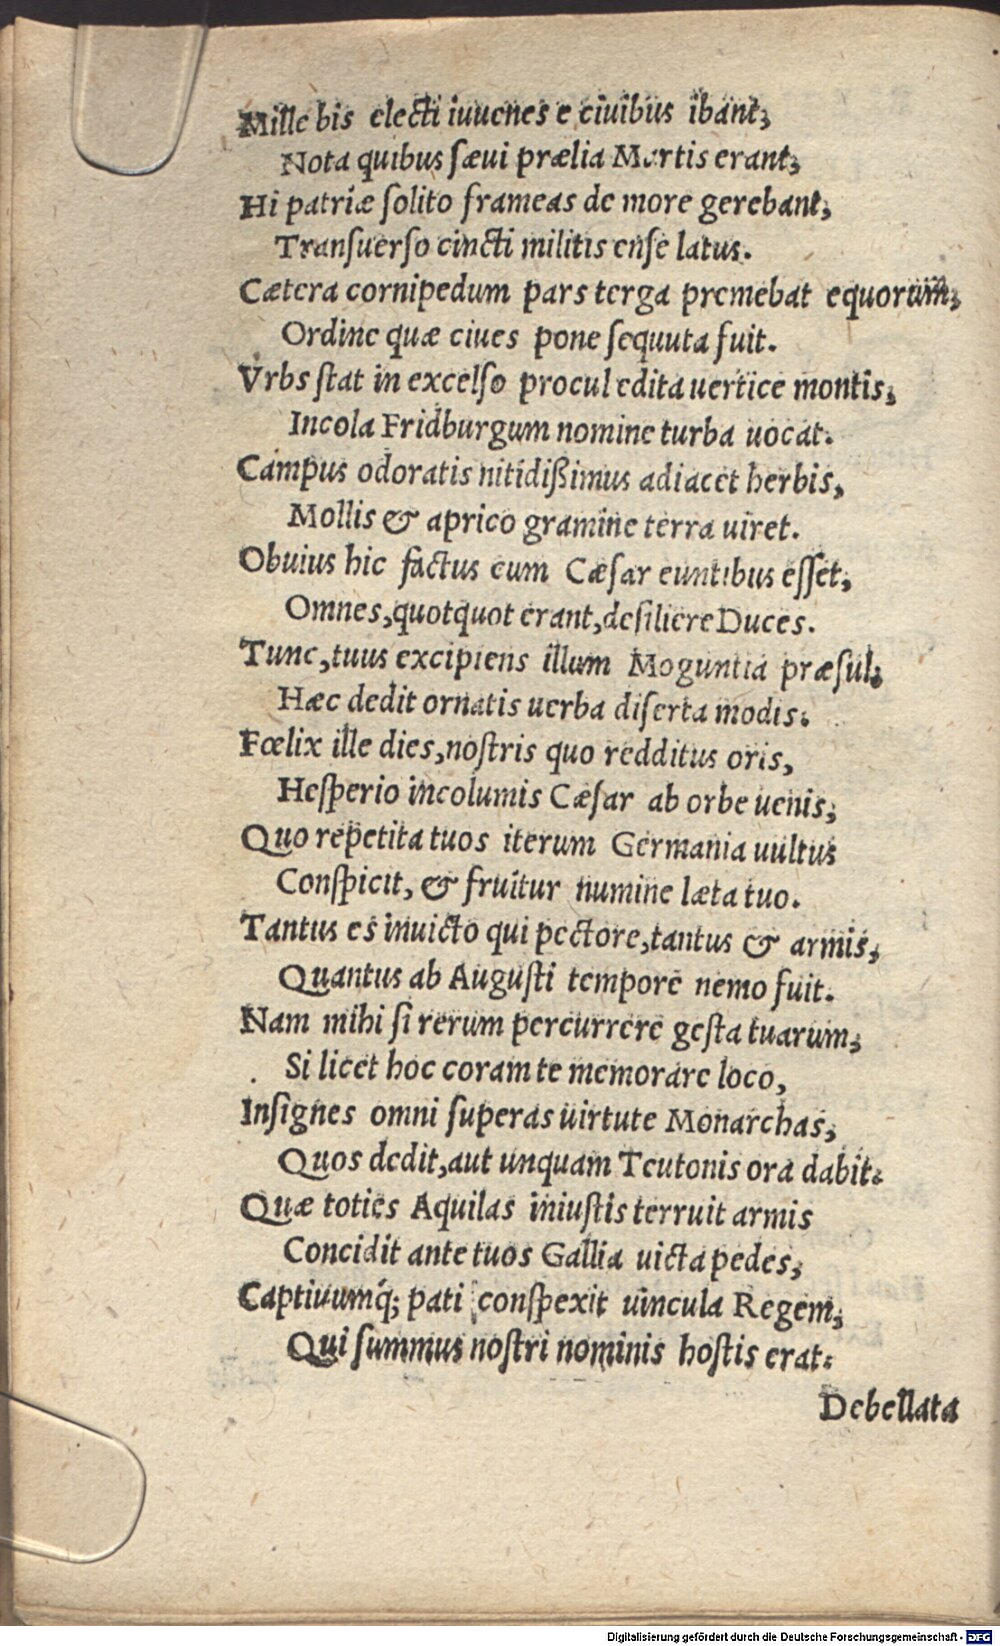 Mille bis electi iuuenes e ciuibus ibant,
Nota quibus sæui prælia Martis erant,
Hi patriæ solito frameas de more gerebant,
Transuerso cincti militis ense latus.
Cætera cornipedum pars terga premebat equorum,
Ordine quæ ciues pone sequuta fuit.
Vrbs stat in excelso procul edita uertice montis,
Incola Fridburgum nomine turba uocat.
Campus odoratis nitidißimus adiacet herbis,
Mollis & aprico gramine terra uiret.
Obuius hic factus cum Cæsar euntibus esset,
Omnes, quotquot erant, desiliere Duces.
Tunc, tuus excipiens illum Moguntia præsul,
Hæc dedit ornatis uerba diserta modis.
Fœlix ille dies, nostris quo redditus oris,
Hesperio incolumis Cæsar ab orbe uenis,
Quo repetita tuos iterum Germania uultus
Conspicit, & fruitur numine læta tuo.
Tantus es inuicto qui pectore, tantus & armis,
Quantus ab Augusti tempore nemo fuit.
Nam mihi si rerum percurrere gesta tuarum,
Si licet hoc coram te memorare loco,
Insignes omni superas uirtute Monarchas,
Quos dedit, aut unquam Teutonis ora dabit.
Quæ toties Aquilas iniustis terruit armis
Concidit ante tuos Gallia uicta pedes,
Captiuumq́; pati conspexit uincula Regem,
Qui summus nostri nominis hostis erat.
Debellata
Digitalisierung gefördert durch die Deutsche Forschungsgemeinschaft - DFG